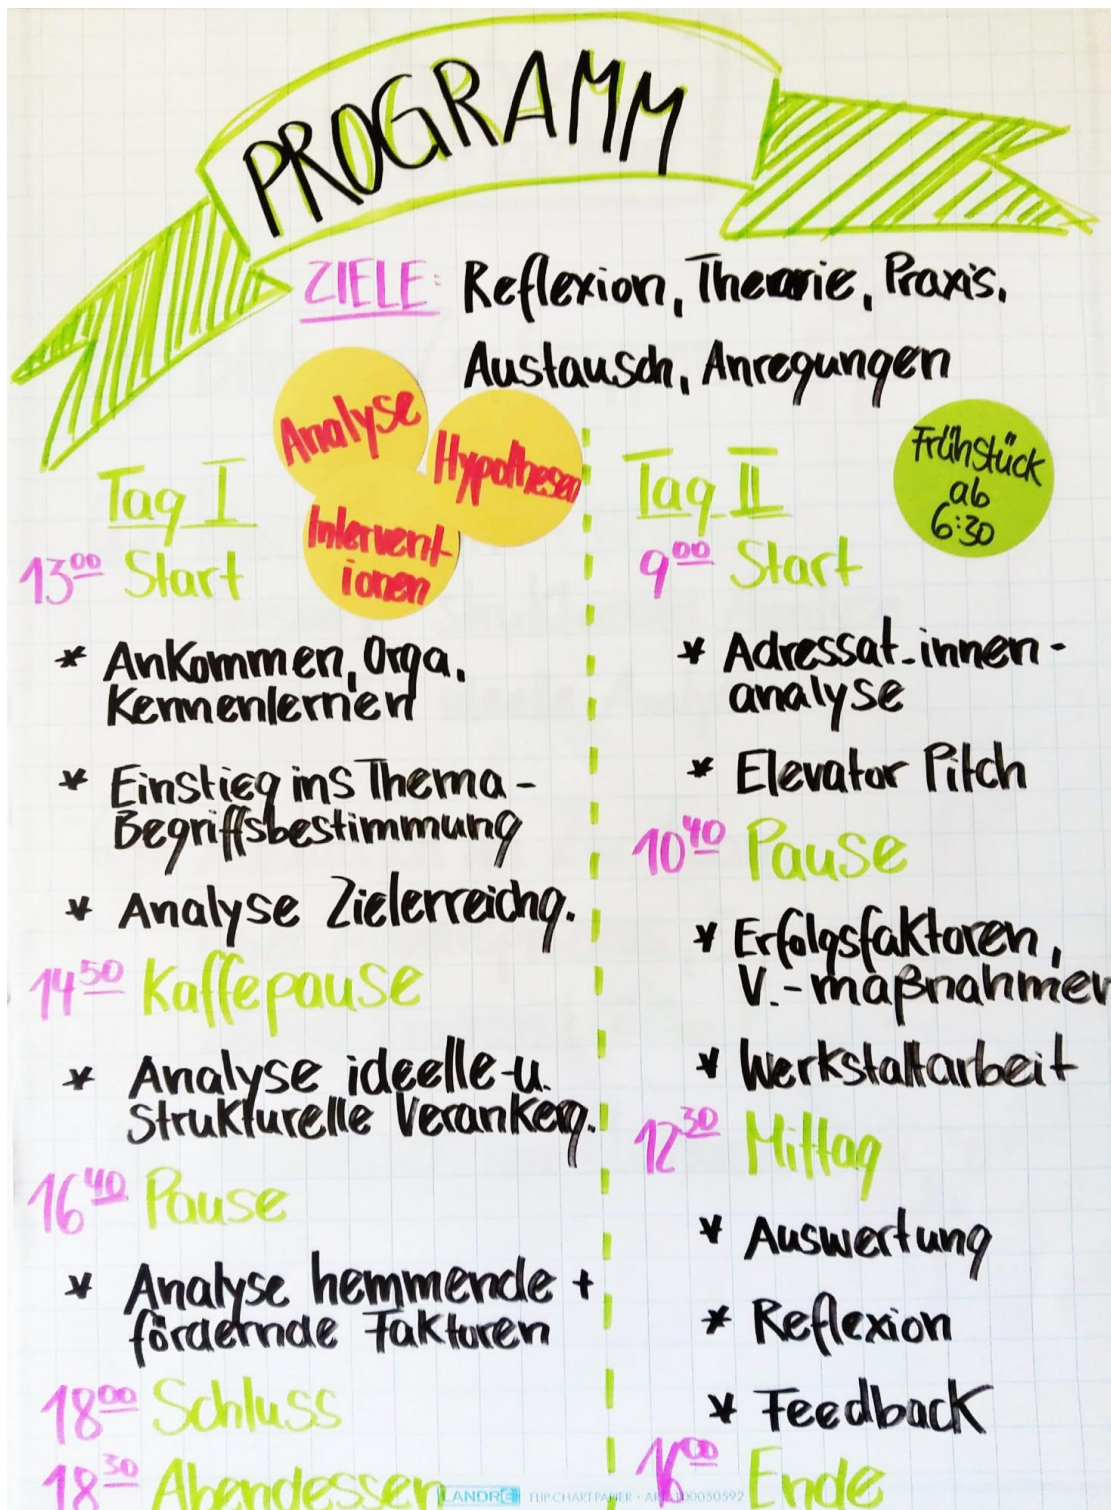 PROGRAMM
ZIELE: Reflexion, Theorie, Praxis,
Austausch, Anregungen
Analyse
Hypothesen
Intervent-
ionen
Tag I
13⁰⁰ Start
* Ankommen, Orga,
Kennenlernen
* Einstieg ins Thema -
Begriffsbestimmung
* Analyse Zielerreichg.
14⁵⁰ Kaffepause
* Analyse ideelle u.
Strukturelle Verankerg.
16⁴⁰ Pause
* Analyse hemmende +
fördernde Faktoren
18⁰⁰ Schluss
18³⁰ Abendessen
Tag II
Frühstück
ab
6:30
9⁰⁰ Start
* Adressat_innen-
analyse
* Elevator Pitch
10⁴⁰ Pause
* Erfolgsfaktoren,
V.-maßnahmen
* Werkstattarbeit
12³⁰ Mittag
* Auswertung
* Reflexion
* Feedback
Ende
LANDRÉ FLIP-CHART-PAPIER · ART. 100050592